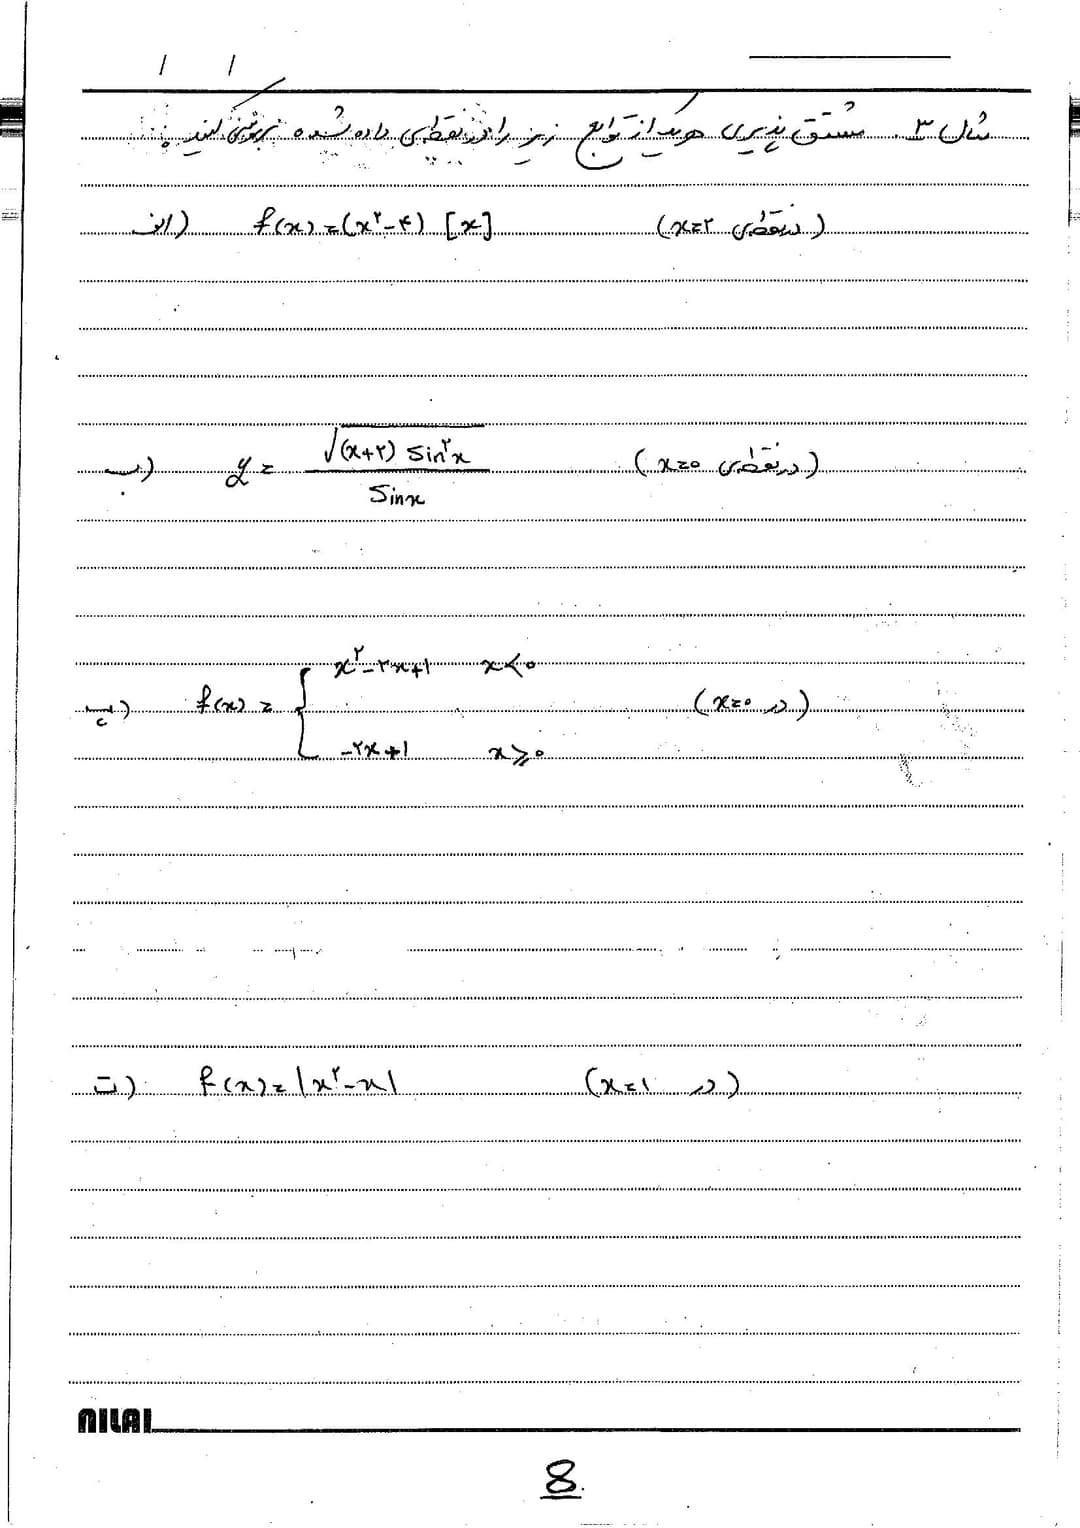 مثال ۳. مشتق پذیری هریک از توابع زیر را در نقطه‌ی داده شده بررسی کنید:
الف) f(x)=(x²-۴)[x] (در نقطه‌ی x=۲)
ب) y = √((x+۲) sin²x) / sinx (در نقطه‌ی x=۰)
پ) f(x) = { x²-۲x+1 x<۰
(در x=۰)
-۲x+1 x⩾۰
ت) f(x)=|x²-x| (در x=1)
NILAI
8